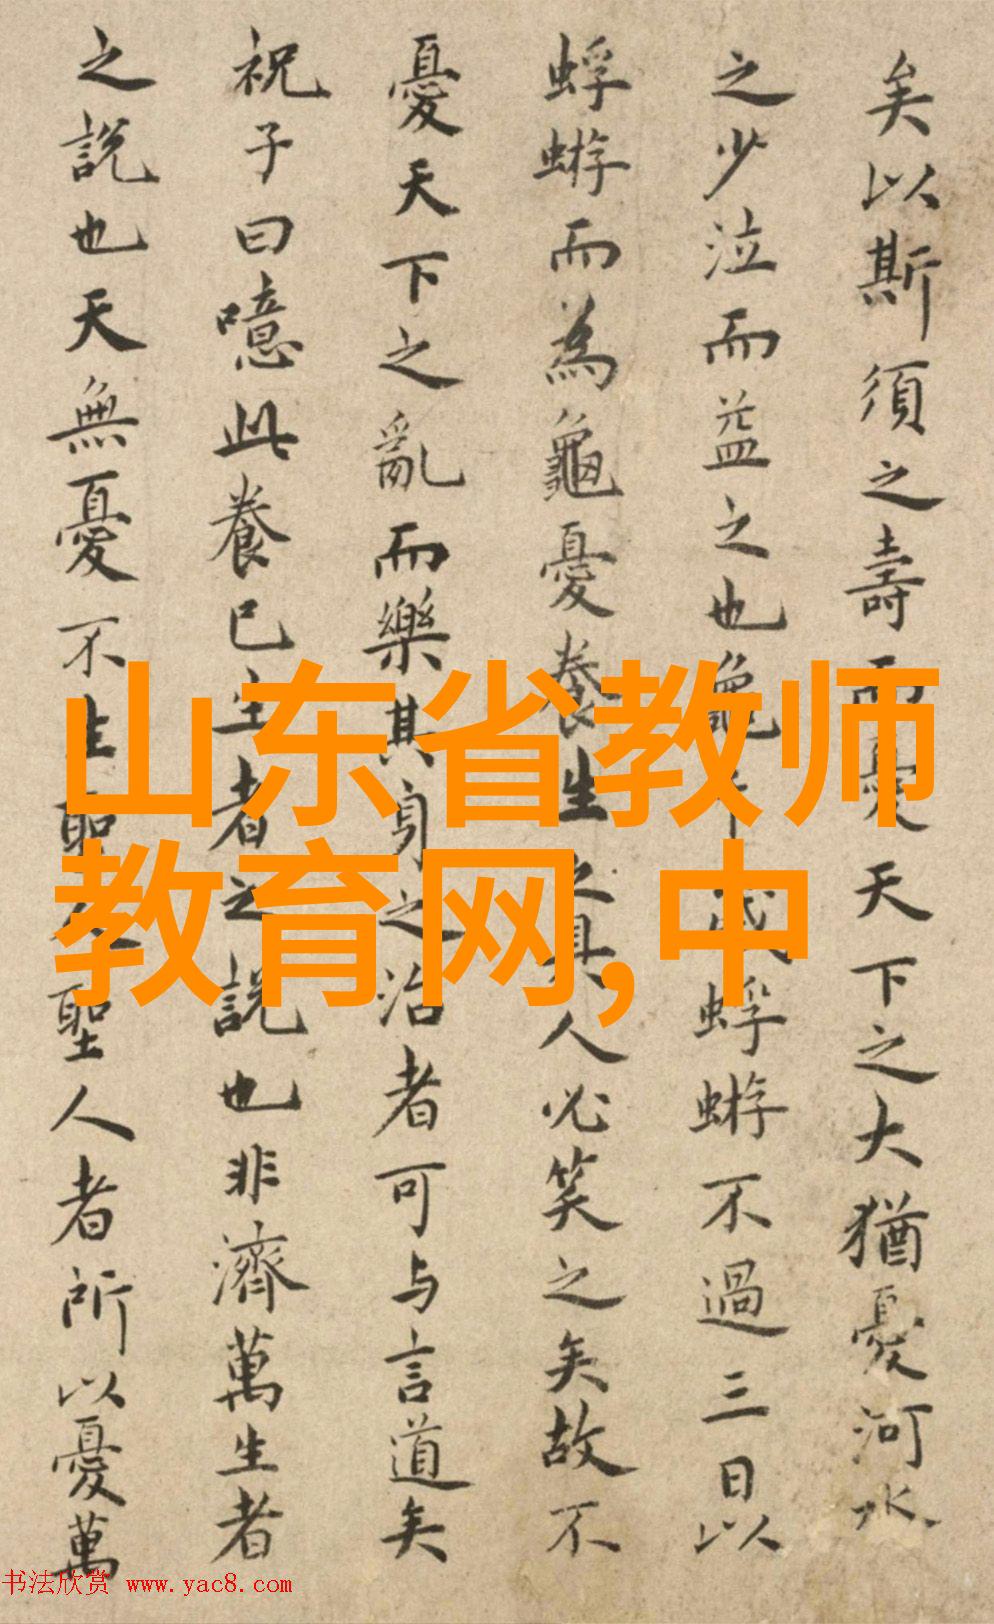 矣以斯須之壽而憂天下之大猶憂河水
之少泣而益之也龜千歲蜉蝣不過三日以
蜉蝣而為龜憂養生之具人必笑之矣故不
憂天下之亂而樂其身之治者可与言道矣
祝子曰噫此養己生者之說也非濟萬生者
之說也天無憂不生聖人聖人者所以憂萬
山东省教师
教育网,中
书法欣赏 www.yac8.com